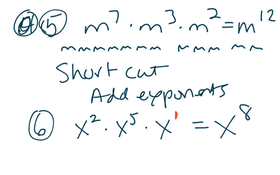 ⑤ m⁷ · m³ · m² = m¹²
mmmmmmm mmm mm
Short cut
Add exponents
⑥ x² · x⁵ · x¹ = x⁸